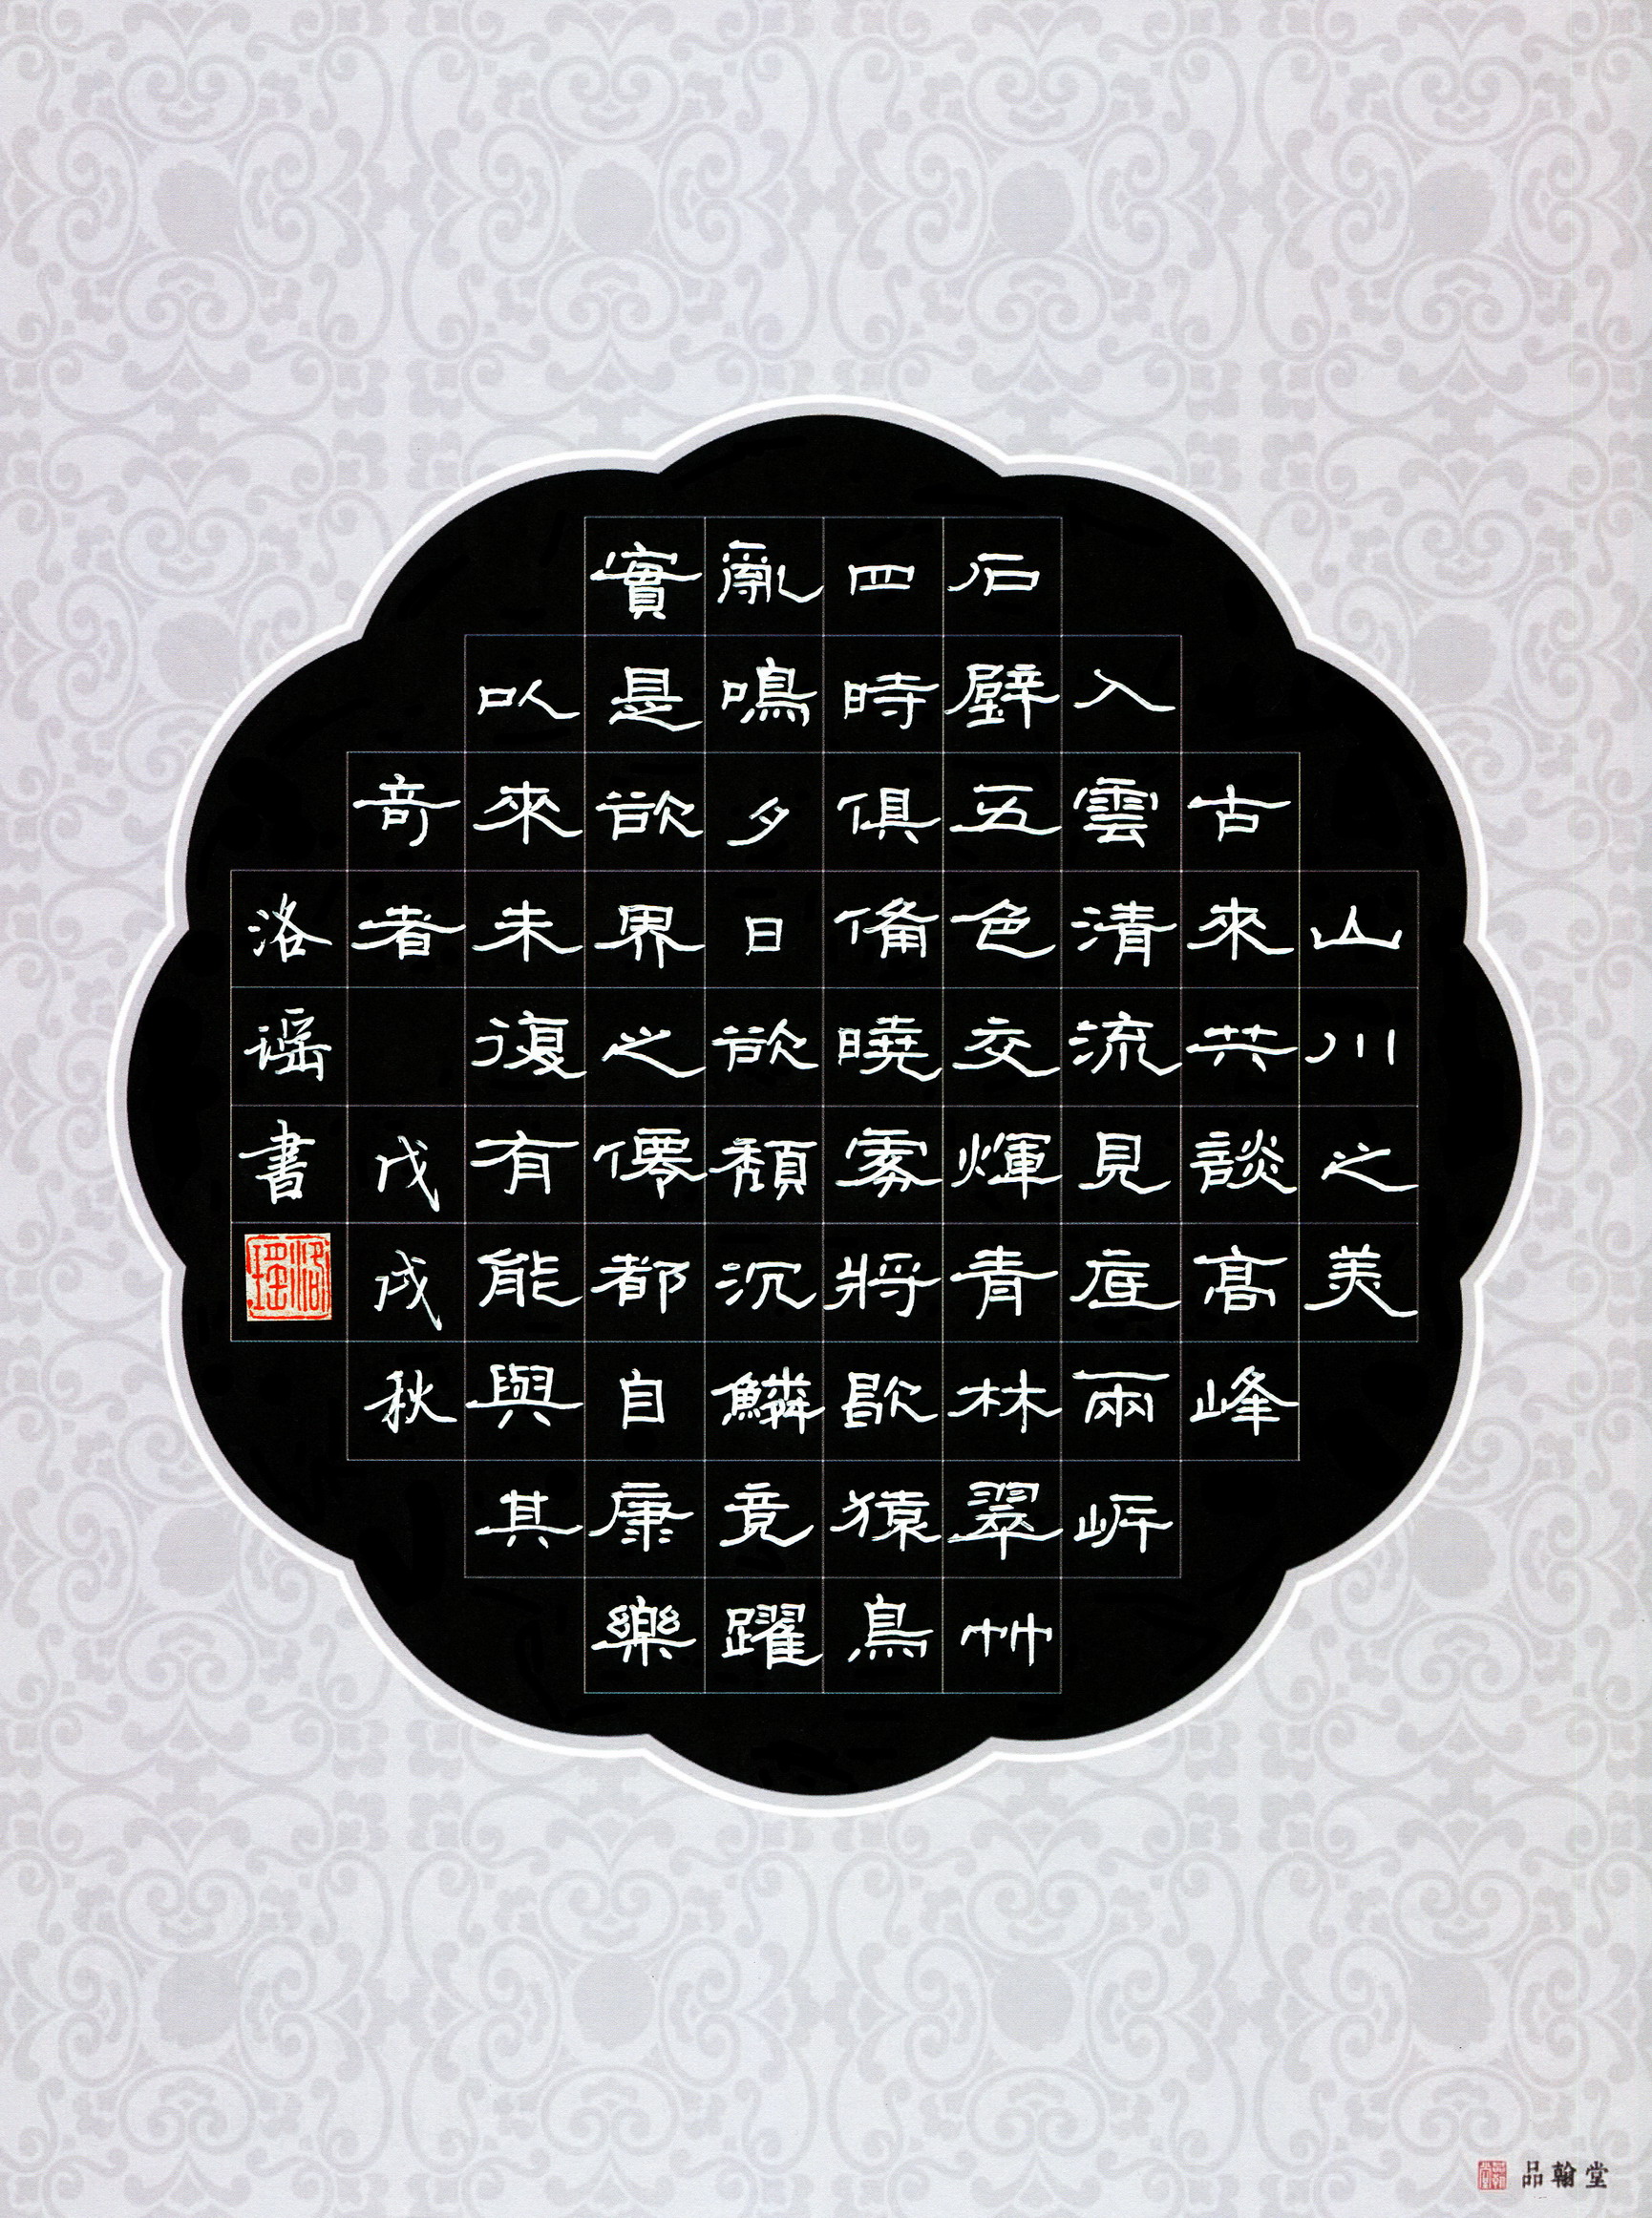 山川之美
古來共談高峰
入雲清流見底兩岸
石壁五色交輝青林翠竹
四時俱備曉霧將歇猿鳥
亂鳴夕日欲頹沉鱗竟躍
實是欲界之僊都自康樂
以來未復有能與其
奇者 戊戌秋
洛谣書
洛瑶
品翰堂